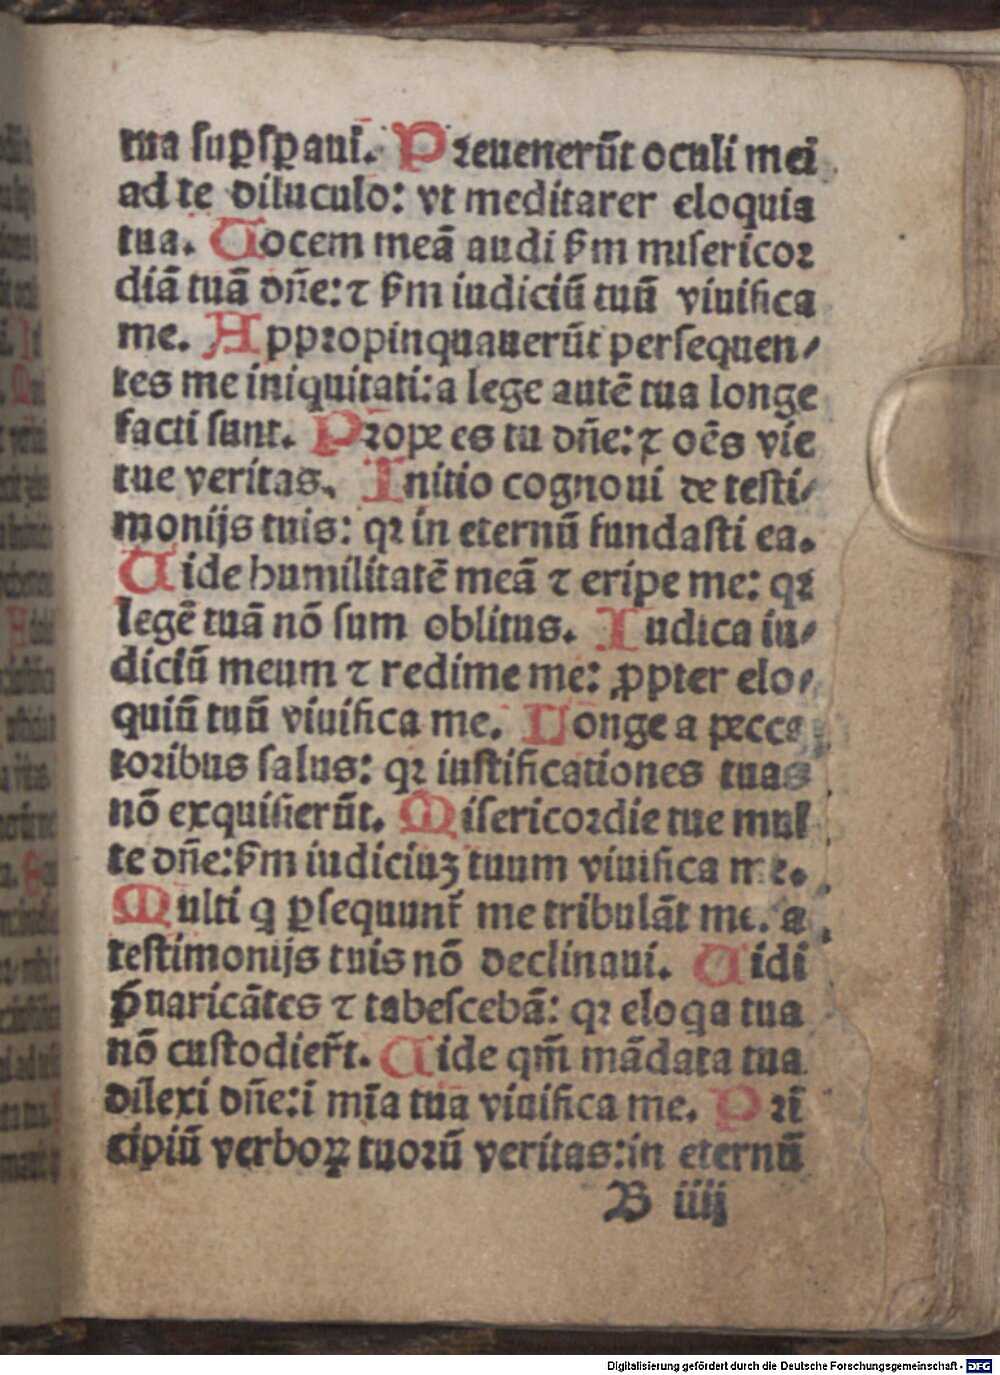 tua suꝑſꝑaui. Preuenerūt oculi mei
ad te diluculo: vt meditarer eloquia
tua. Vocem meā audi ẜm miſericor
diā tuā dn̄e: ⁊ ẜm iudiciū tuū viuifica
me. Appropinquauerūt perſequen⸗
tes me iniquitati: a lege autē tua longe
facti ſunt. Prope es tu dn̄e: ⁊ oēs vie
tue veritas. Initio cognoui de teſti⸗
monijs tuis: qꝛ in eternū fundaſti ea.
Vide humilitatē meā ⁊ eripe me: qꝛ
legē tuā nō ſum oblitus. Iudica iu⸗
diciū meum ⁊ redime me: ꝓpter elo⸗
quiū tuū viuifica me. Longe a pecca
toribus ſalus: qꝛ iuſtificationes tuas
nō exquiſierūt. Miſericordie tue mul
te dn̄e: ẜm iudiciuꝫ tuum viuifica me.
Multi q ꝑſequunt̄ me tribulāt me. a
teſtimonijs tuis nō declinaui. Vidi
p̄uaricātes ⁊ tabeſcebā: qꝛ eloqa tua
nō cuſtodier̄t. Vide qm̄ mādata tua
dilexi dn̄e: ī mīa tua viuifica me. Prī
cipiū verboꝝ tuorū veritas: in eternū
B iiij
Digitalisierung gefördert durch die Deutsche Forschungsgemeinschaft - DFG